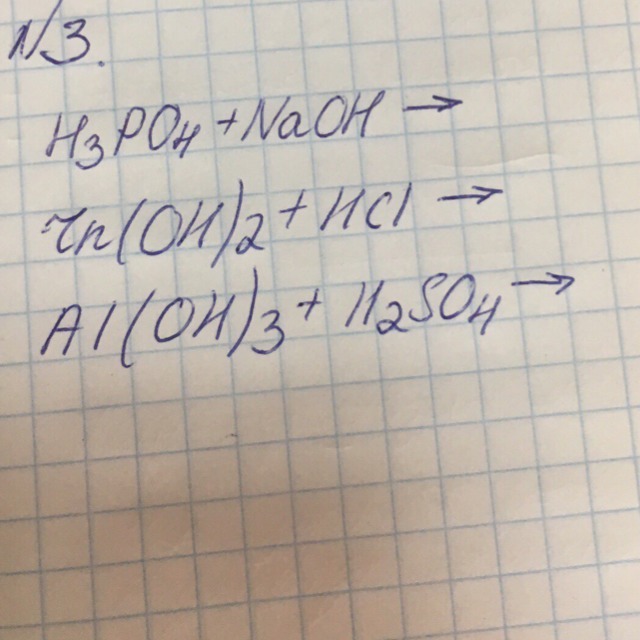 N3.
H₃PO₄ + NaOH →
Zn(OH)₂ + HCl →
Al(OH)₃ + H₂SO₄ →